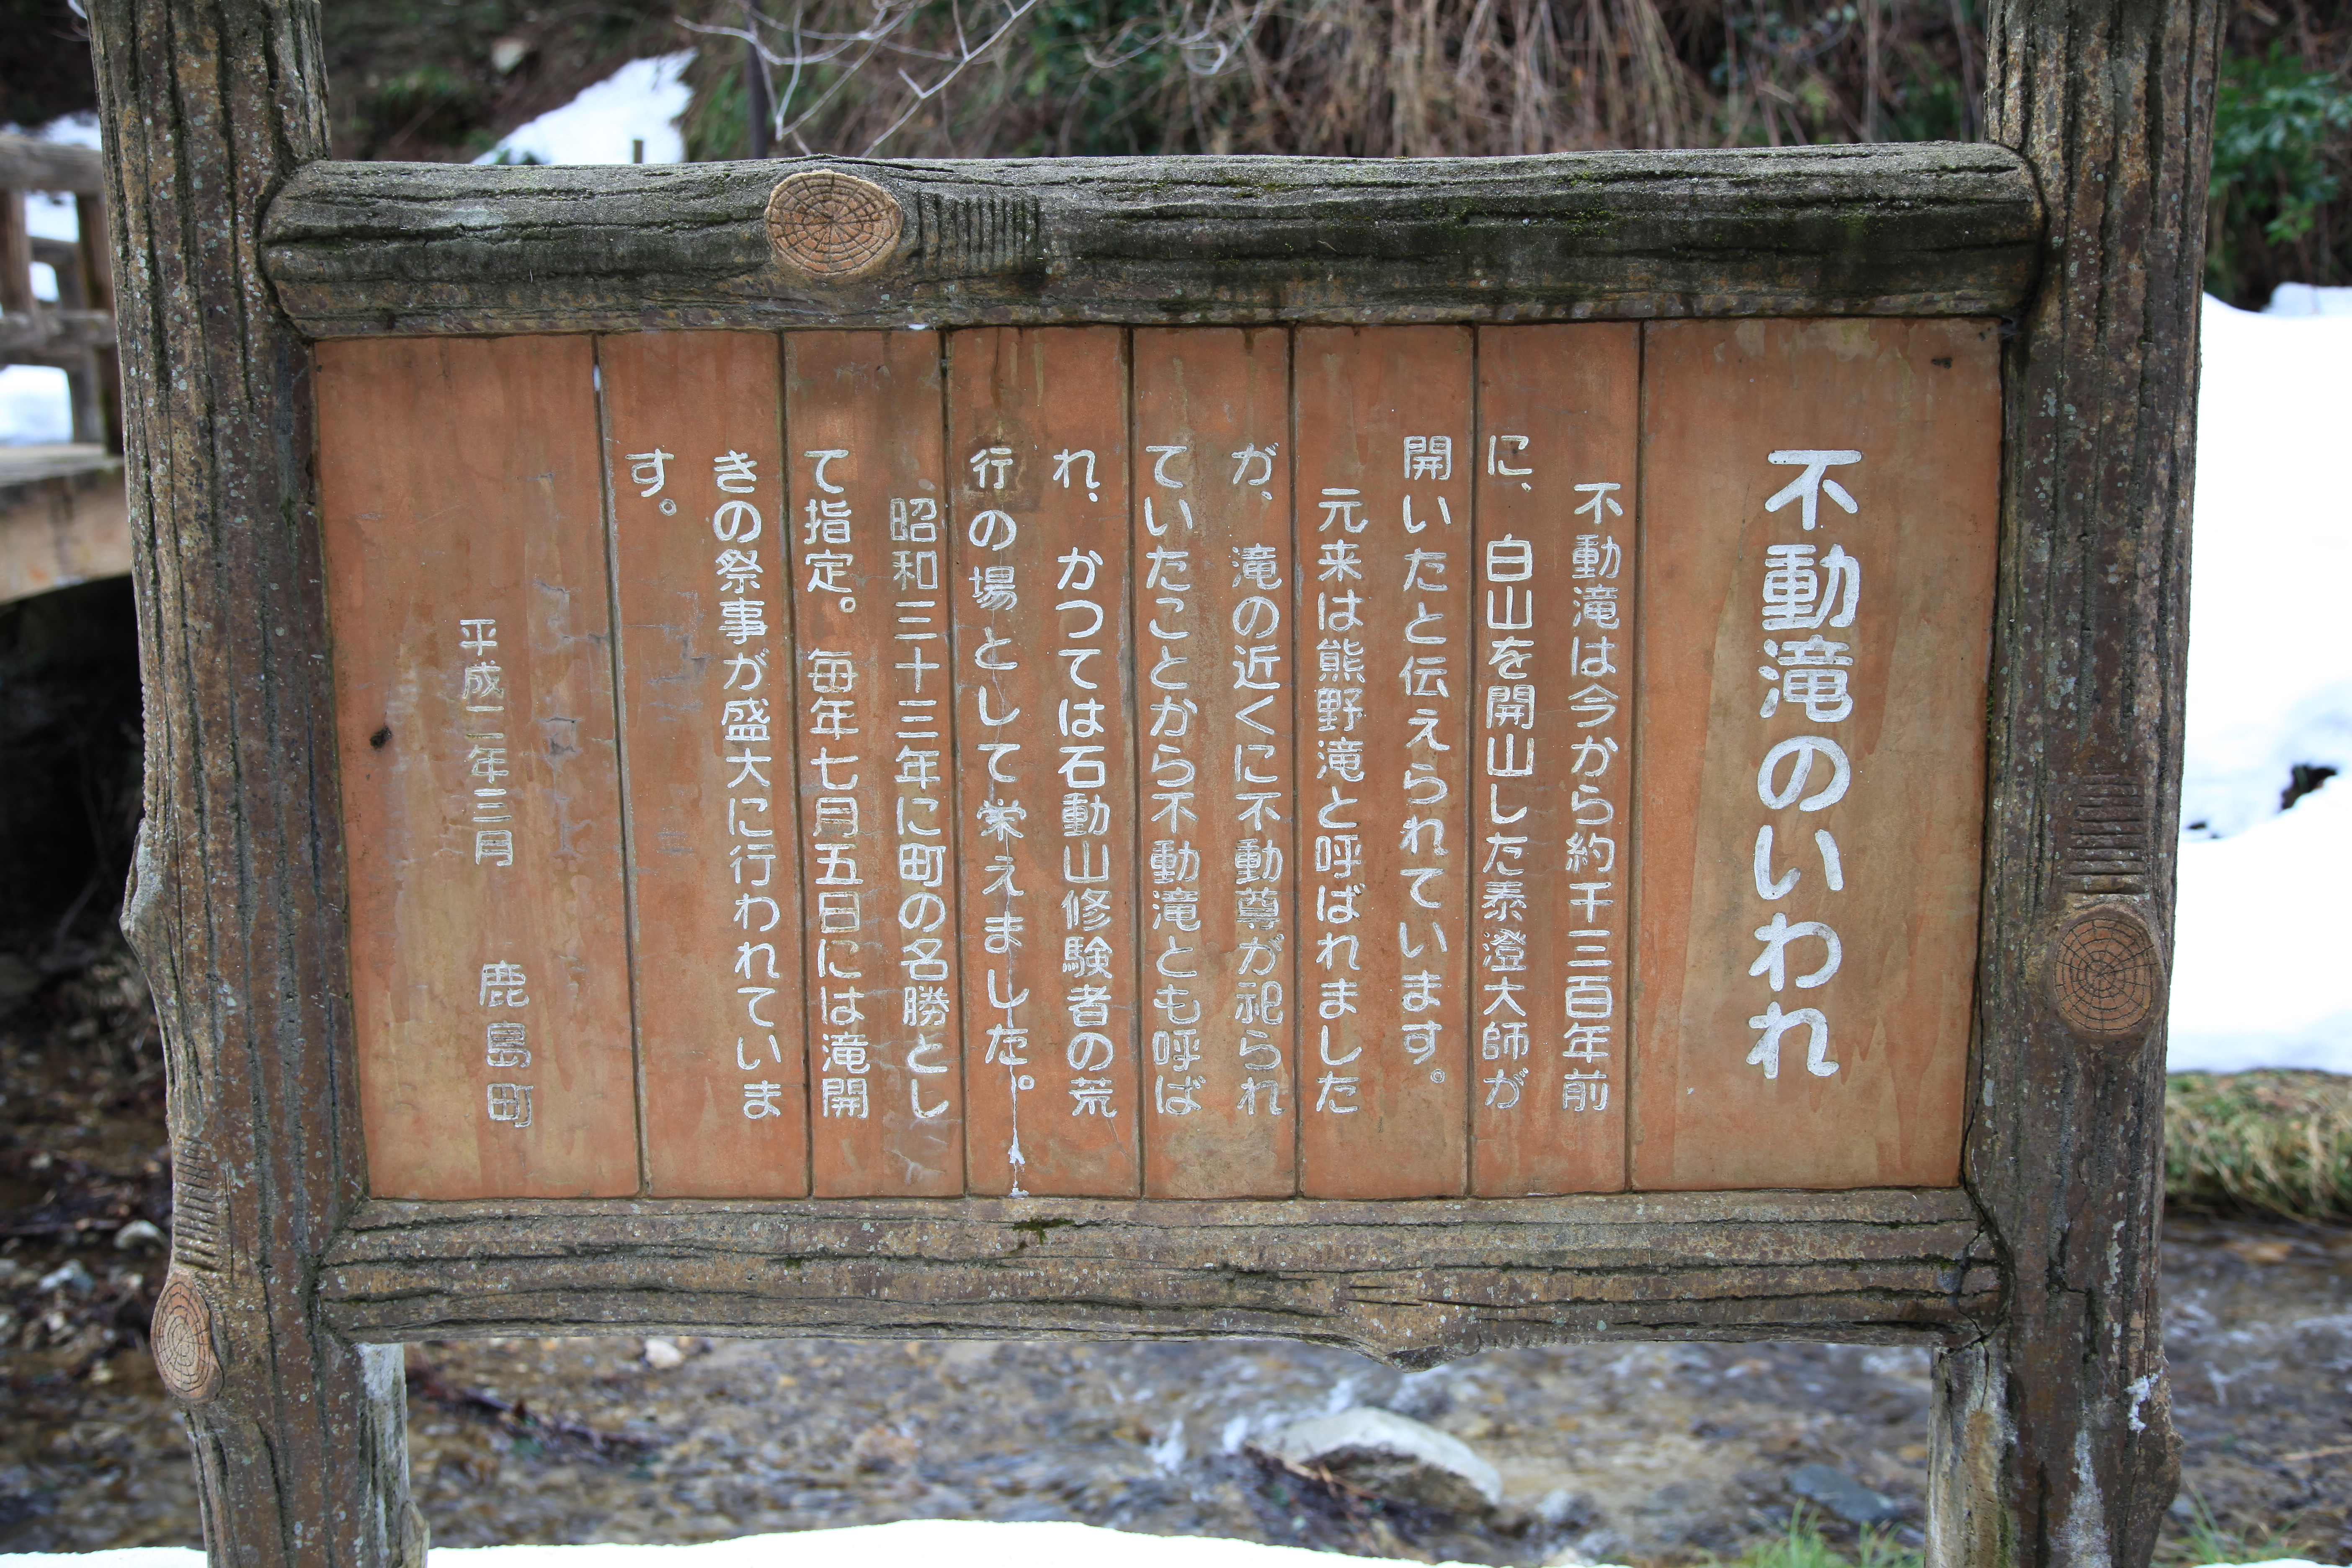 不動滝のいわれ
不動滝は今から約千三百年前
に、白山を開山した泰澄大師が
開いたと伝えられています。
元来は熊野滝と呼ばれました
が、滝の近くに不動尊が祀られ
ていたことから不動滝とも呼ば
れ、かつては石動山修験者の荒
行の場として栄えました。
昭和三十三年に町の名勝とし
て指定。毎年七月五日には滝開
きの祭事が盛大に行われていま
す。
平成二年三月 鹿島町